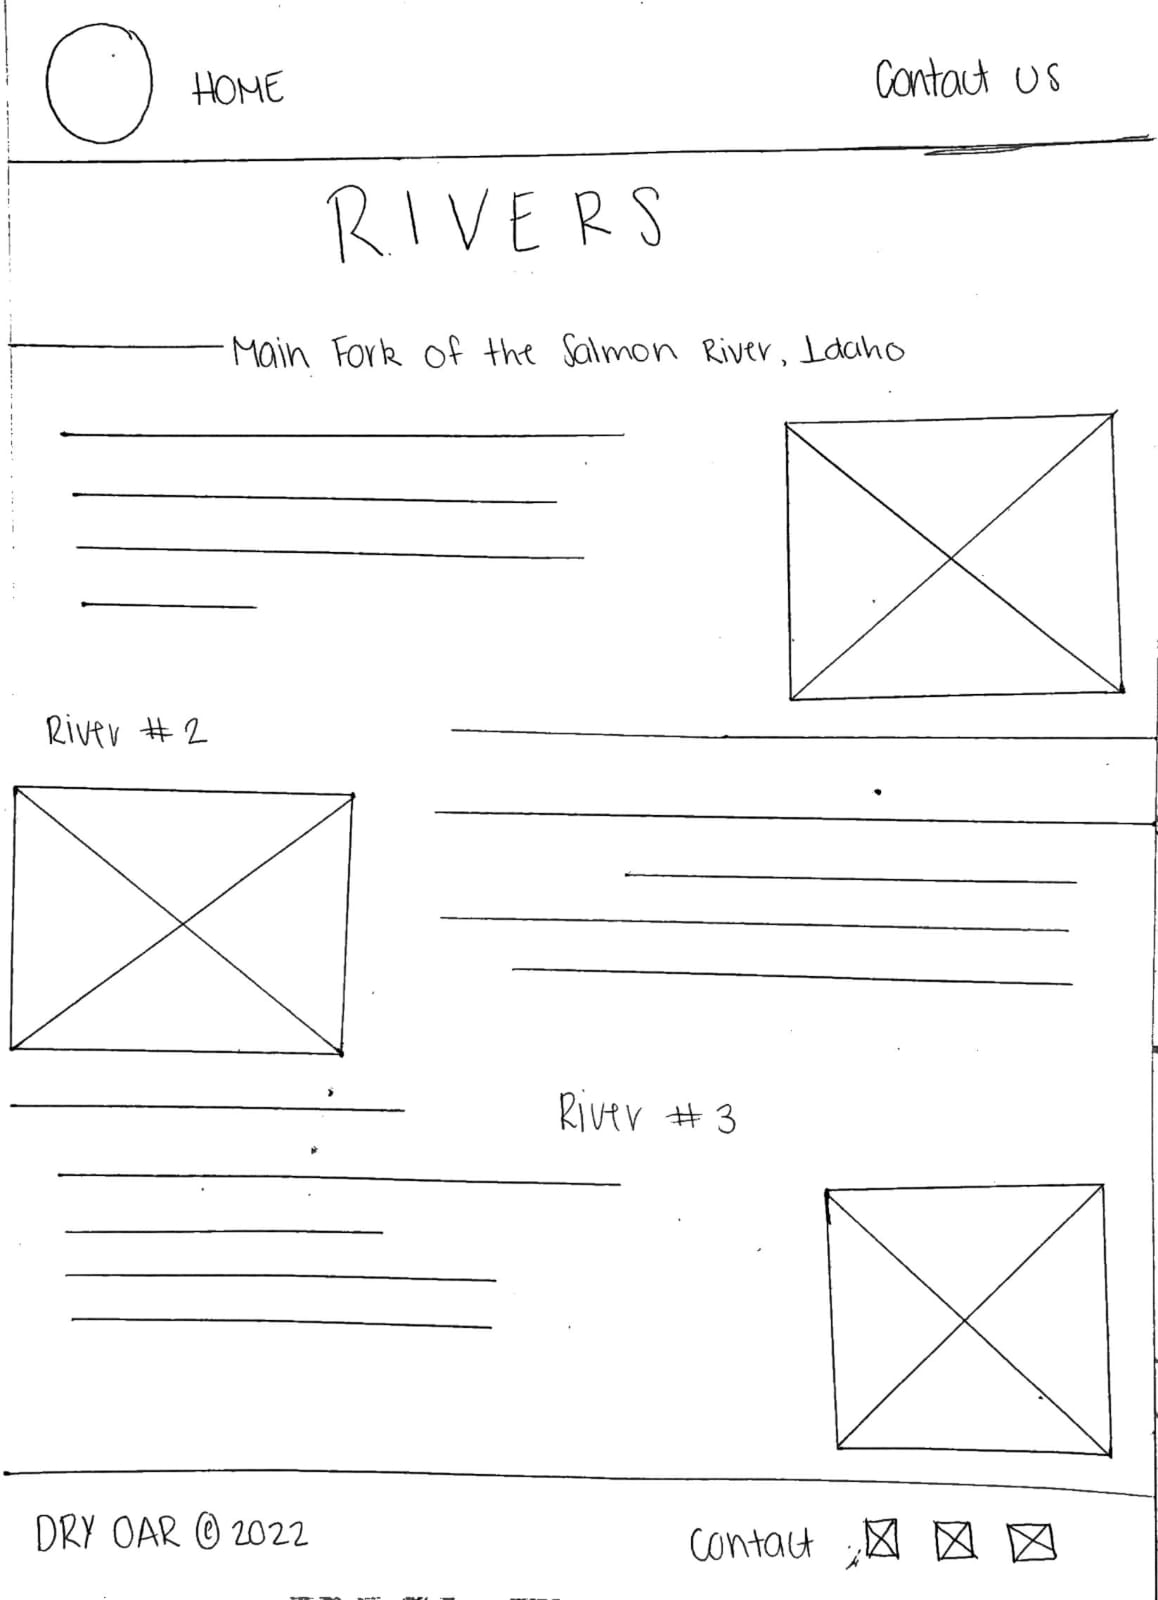 HOME
Contact us
RIVERS
Main Fork of the Salmon River, Idaho
River # 2
River # 3
DRY OAR © 2022
Contact